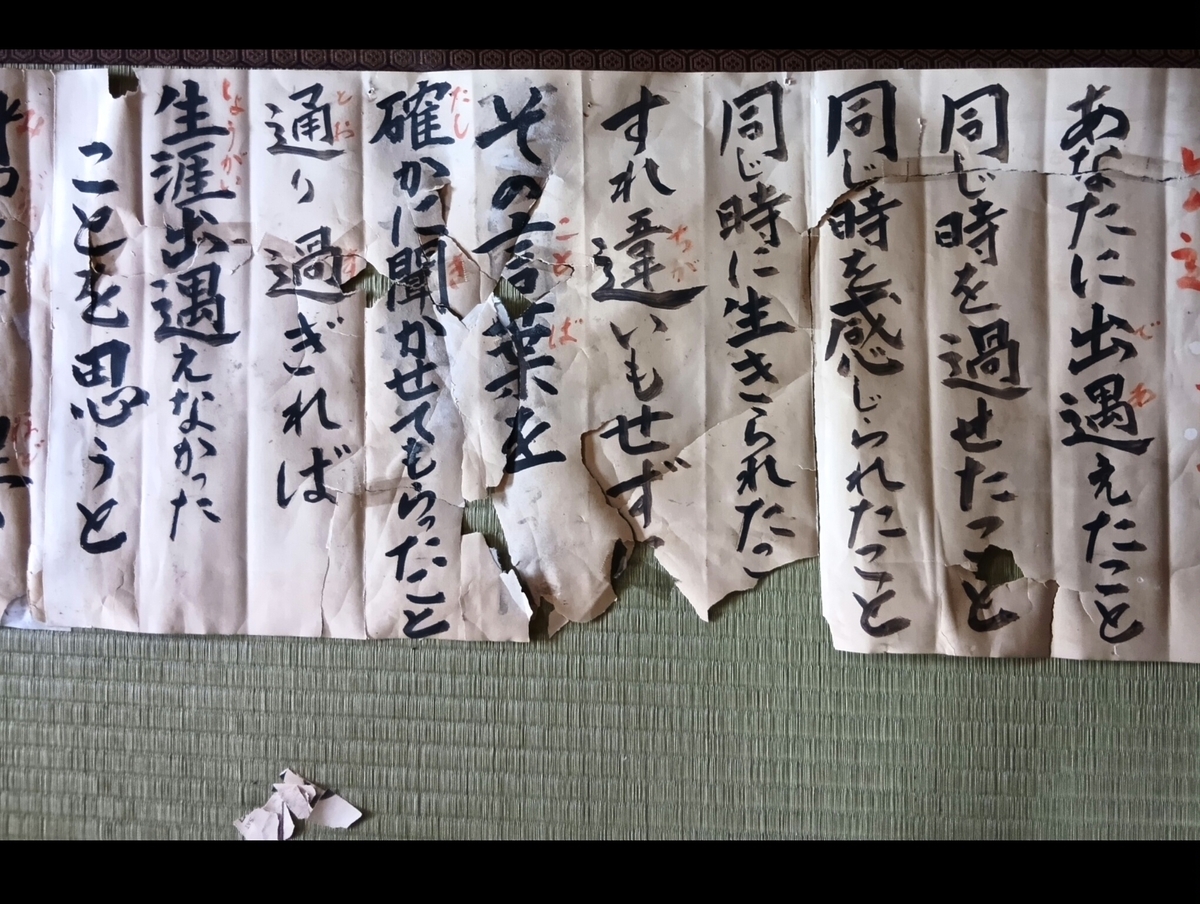 あなたに出遇えたこと
同じ時を過せたこと
同じ時を感じられたこと
同じ時に生きられたこ
すれ違いもせず
その言葉を
確かに聞かせてもらったこと
通り過ぎれば
生涯出遇えなかった
ことを思うと